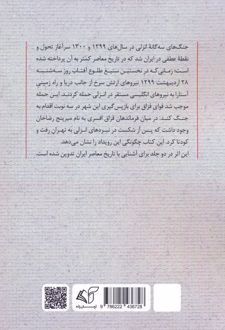 جنگ‌های سه‌گانهٔ انزلی در سال‌های ۱۲۹۹ و ۱۳۰۰ سرآغاز تحول و
نقطهٔ عطفی در ایران شد که در تاریخ معاصر کمتر به آن پرداخته شده
است؛ زمانی‌که در نخستین ستیغ طلوع آفتاب روز سه‌شنبه
۲۸ اردیبهشت ۱۲۹۹ نیروهای ارتش سرخ از جانب دریا و راه زمینی
آستارا به نیروهای انگلیسی مستقر در انزلی حمله کردند. این حمله
موجب شد قوای قزاق برای بازپس‌گیری این شهر در سه نوبت اقدام به
جنگ کند. در میان فرماندهان قزاق افسری به نام میرپنج رضاخان
وجود داشت که پس از شکست در نبردهای انزلی به تهران رفت و
کودتا کرد. این کتاب چگونگی این رویداد را نشان می‌دهد.
این اثر در دو جلد برای آشنایی با تاریخ معاصر ایران تدوین شده است.
9 786222 436728